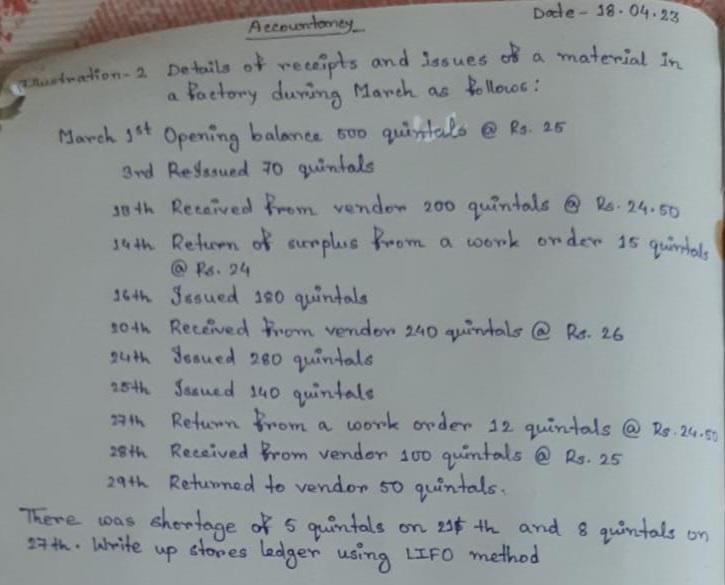 Accountancy
Date - 18.04.23
Illustration - 2 Details of receipts and issues of a material in
a factory during March as follows:
March 1st Opening balance 500 quintals @ Rs. 25
3rd Reissued 70 quintals
18th Received from vendor 200 quintals @ Rs. 24.50
14th Return of surplus from a work order 15 quintals
@ Rs. 24
16th Issued 180 quintals
20th Received from vendor 240 quintals @ Rs. 26
24th Issued 280 quintals
25th Issued 140 quintals
27th Return from a work order 12 quintals @ Rs. 24.50
28th Received from vendor 100 quintals @ Rs. 25
29th Returned to vendor 50 quintals.
There was shortage of 5 quintals on th and 8 quintals on
27th. Write up stores ledger using LIFO method